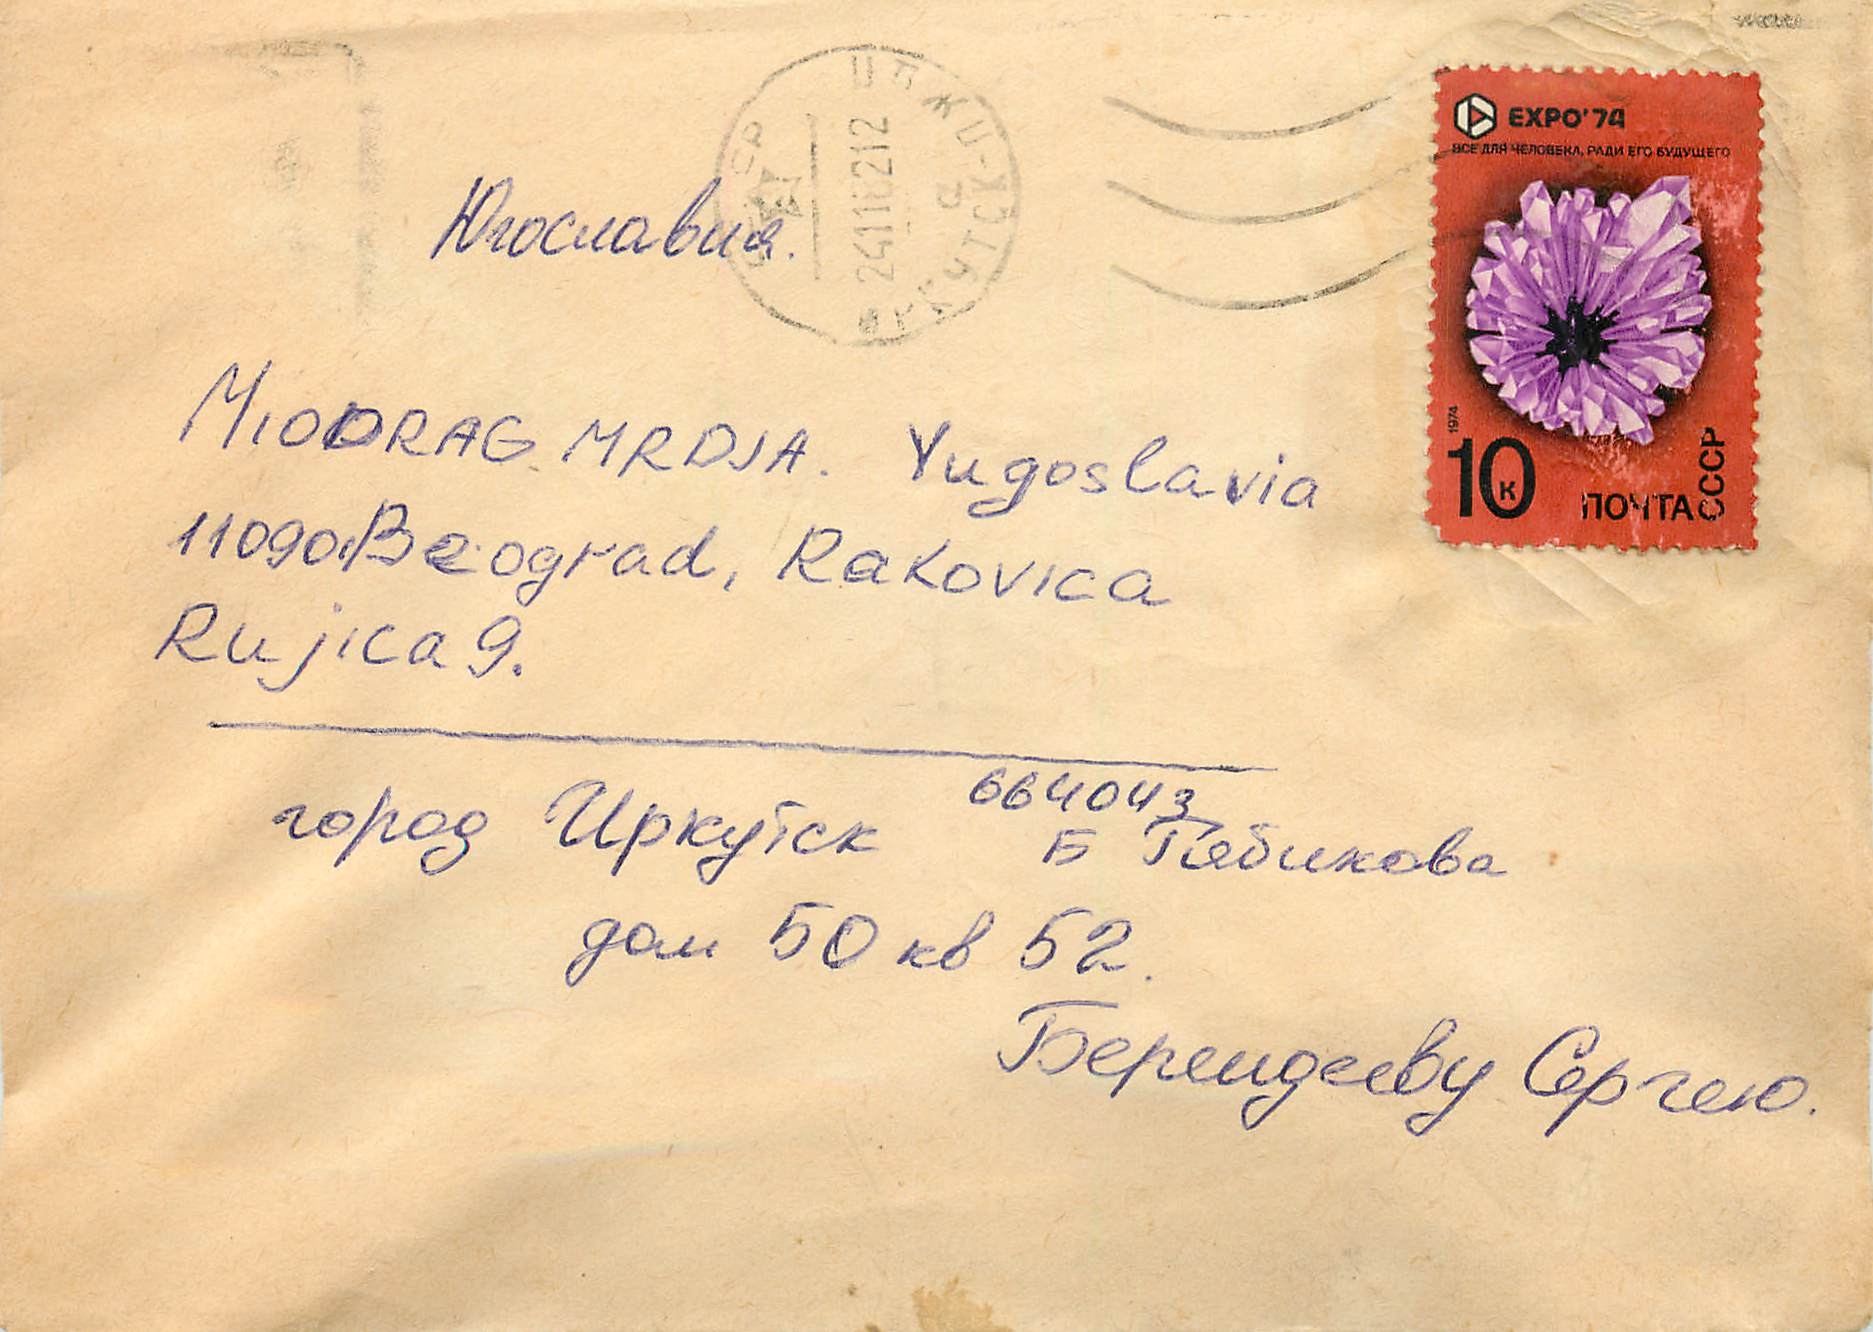 EXPO'74
ВСЕ ДЛЯ ЧЕЛОВЕКА, РАДИ ЕГО БУДУЩЕГО
1974
10 к
ПОЧТА СССР
241182 12
Югославия.
MIODRAG MRDJA. Yugoslavia
11090 Beograd, Rakovica
Rujica 9.
664043
город Иркутск Б Рябикова
дом 50 кв 52.
Берендееву Сергею.